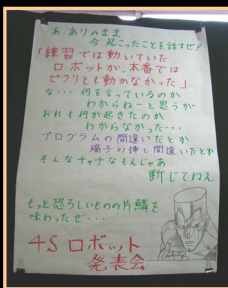 あ、ありのまま
今起こったことを話すぜ!
「練習では動いていた
ロボットが、本番では
ピクリとも動かなかった」
な… 何を言っているのか
わからねーと思うが
おれも何が起きたのか
わからなかった…
プログラムの間違いだとか
端子の挿し間違いだとか
そんなチャチなもんじゃあ
断じてねえ
もっと恐ろしいものの片鱗を
味わったぜ…
4S ロボット
発表会